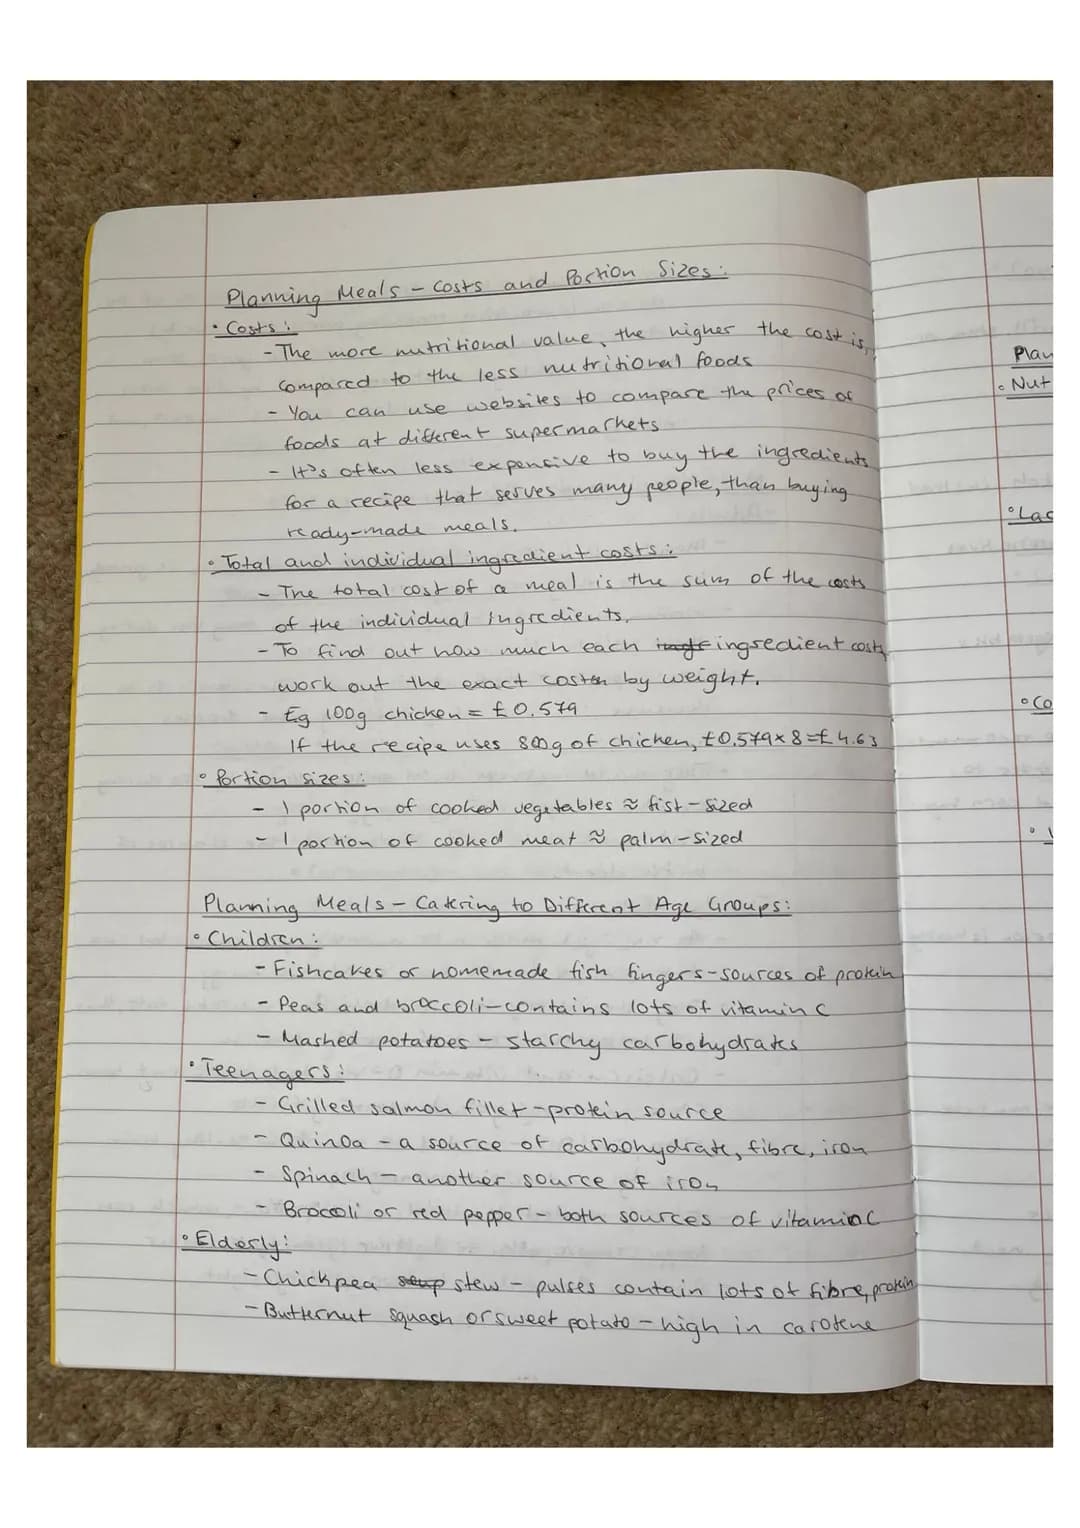 Planning Meals - Costs and Portion Sizes:
• Costs:
- The more nutritional value, the higher the cost is,
compared to the less nutritional foods
- You can use websites to compare the prices of
foods at different supermarkets
- It's often less expensive to buy the ingredients
for a recipe that serves many people, than buying
ready-made meals.
• Total and individual ingredient costs:
- The total cost of a meal is the sum of the costs
of the individual ingredients.
- To find out how much each ingredient costs
work out the exact costs by weight.
- Eg 100g chicken = £0.579
If the recipe uses 800g of chicken, £0.579 x 8 = £4.63
• Portion sizes:
- 1 portion of cooked vegetables ≈ fist-sized
- 1 portion of cooked meat ≈ palm-sized
Planning Meals - Catering to Different Age Groups:
• Children:
- Fishcakes or homemade fish fingers - sources of protein
- Peas and broccoli - contains lots of vitamin C
- Mashed potatoes - starchy carbohydrates
• Teenagers:
- Grilled salmon fillet - protein source
- Quinoa - a source of carbohydrate, fibre, iron
- Spinach - another source of iron
- Broccoli or red pepper - both sources of vitamin C
• Elderly:
- Chickpea soup stew - pulses contain lots of fibre, protein
- Butternut squash or sweet potato - high in carotene
Plan
• Nut
• Lac
• Co